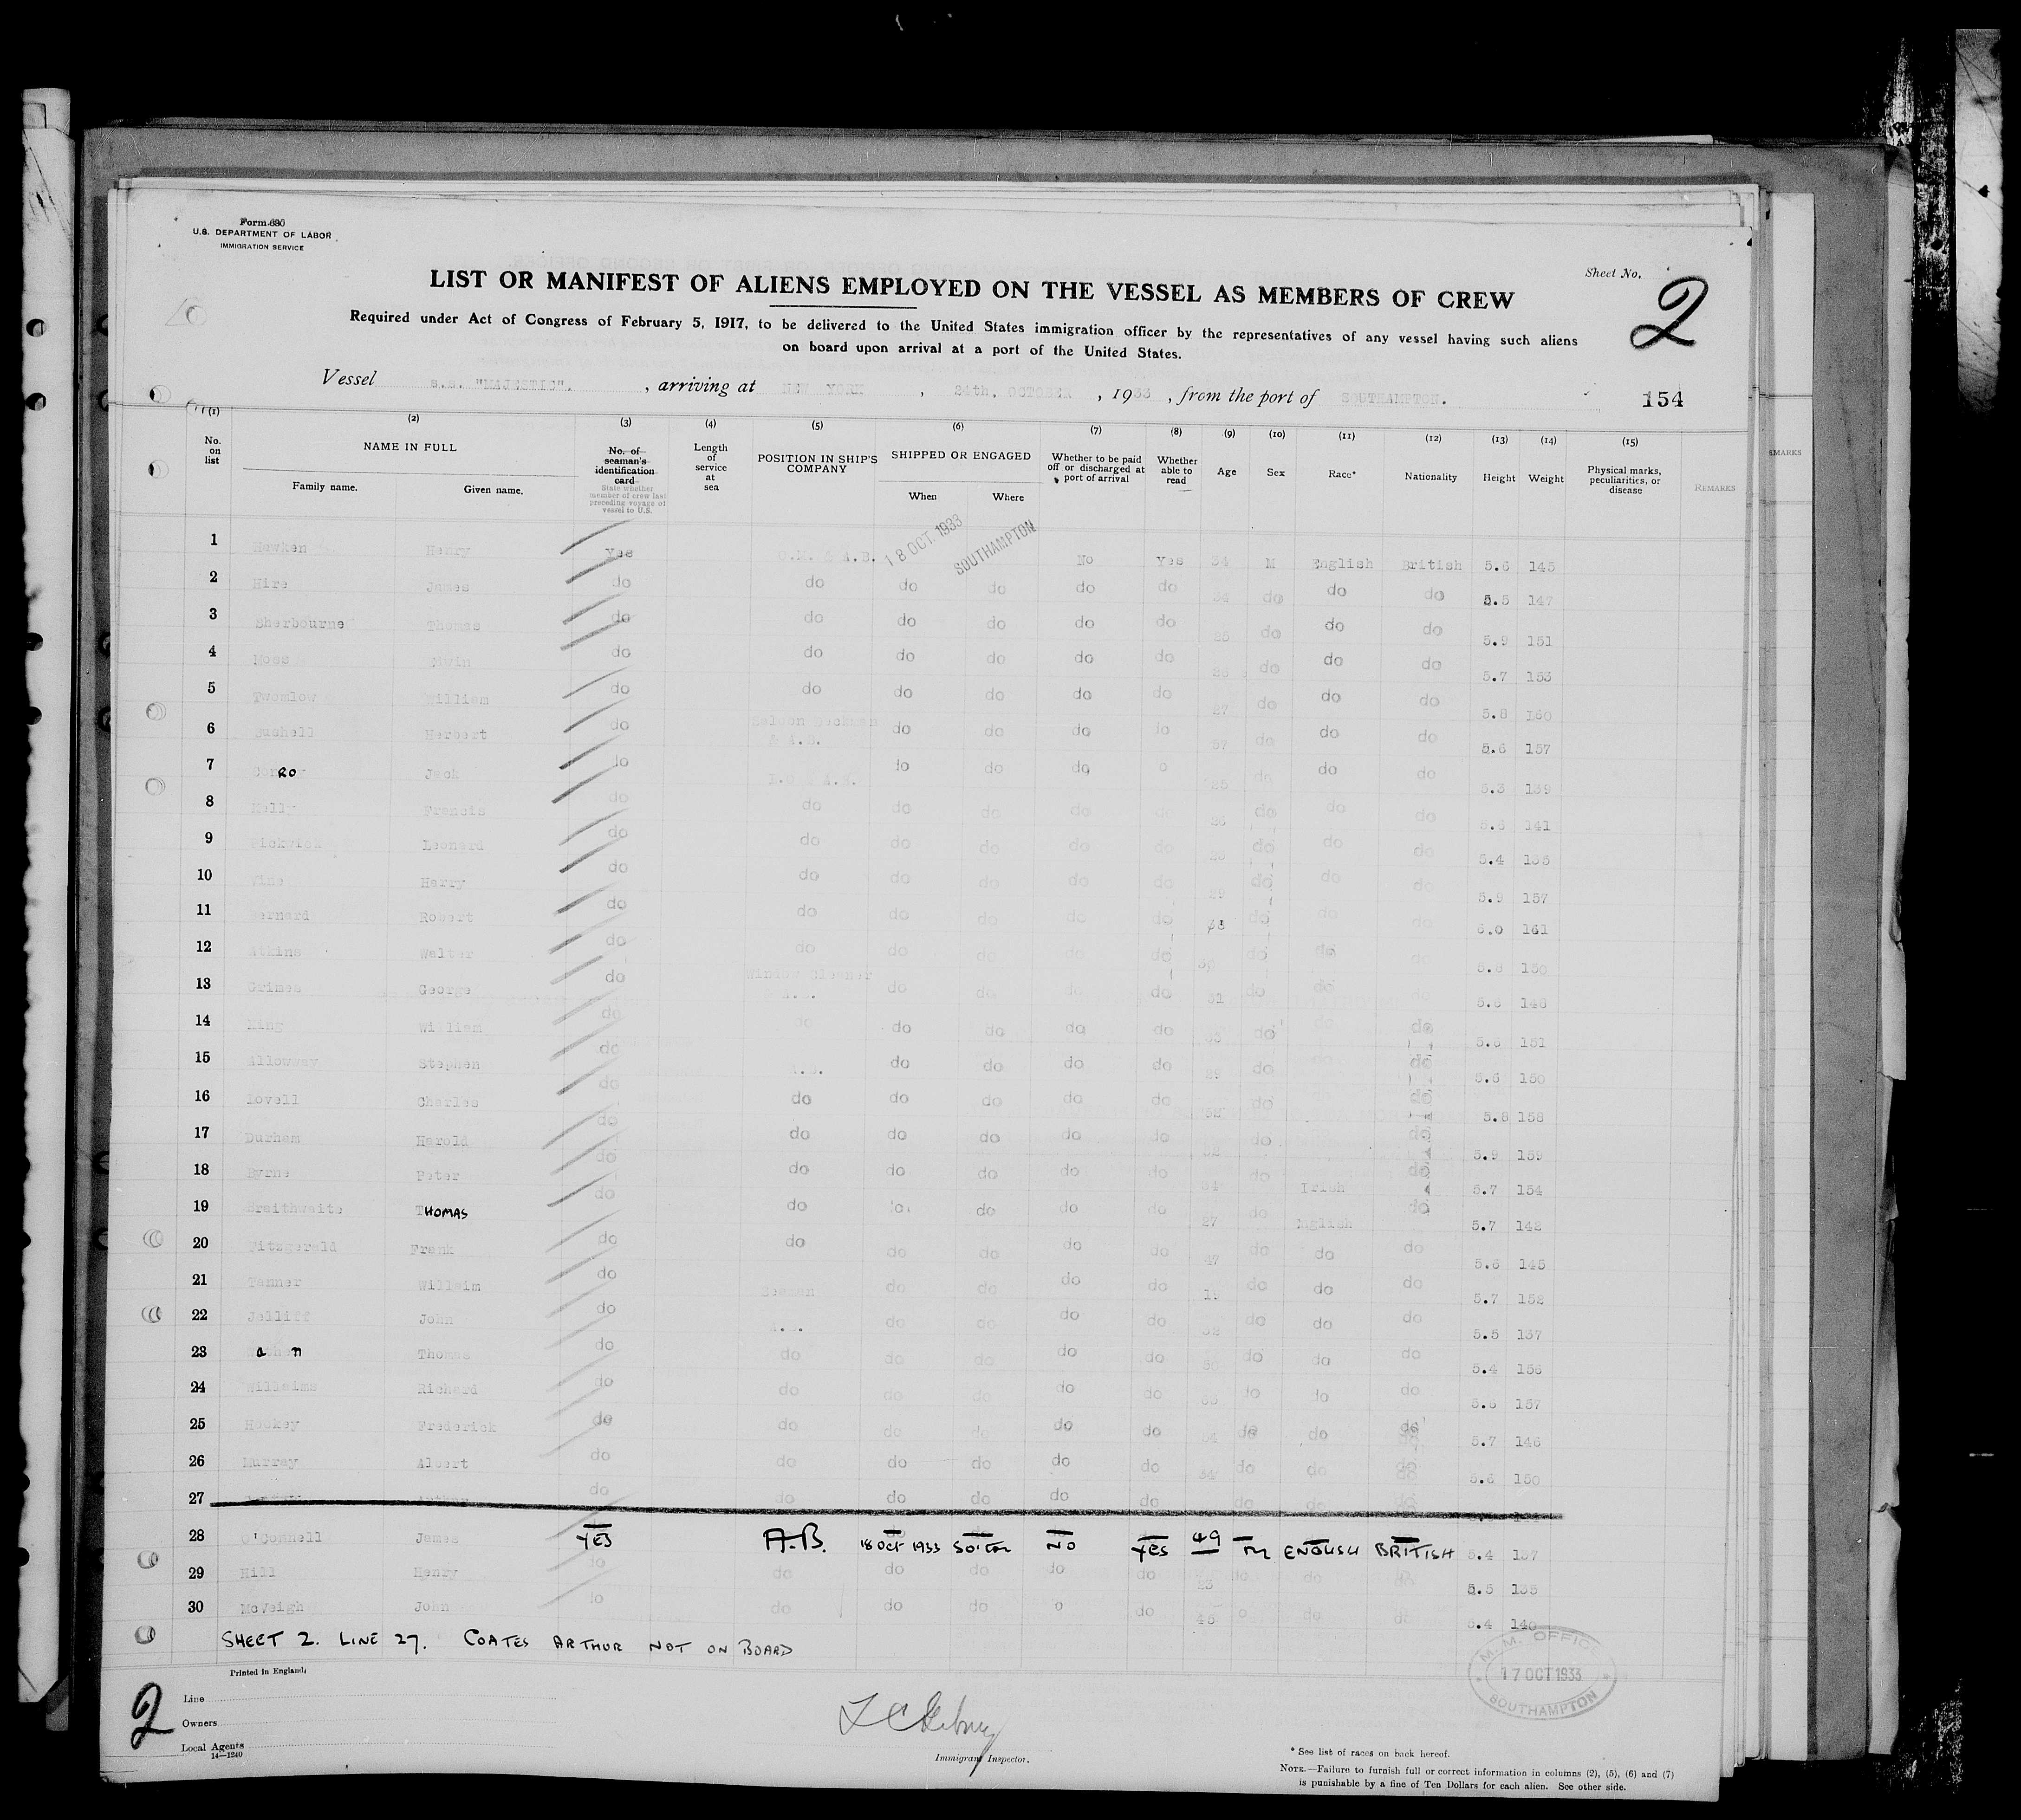 Form 680
U.S. DEPARTMENT OF LABOR
IMMIGRATION SERVICE
Sheet No. 2
LIST OR MANIFEST OF ALIENS EMPLOYED ON THE VESSEL AS MEMBERS OF CREW
Required under Act of Congress of February 5, 1917, to be delivered to the United States immigration officer by the representatives of any vessel having such aliens
on board upon arrival at a port of the United States.
Vessel s.s. "MAJESTIC". , arriving at NEW YORK , 24th. OCTOBER , 1933 , from the port of SOUTHAMPTON.
154
(1) (2) (3) (4) (5) (6) (7) (8) (9) (10) (11) (12) (13) (14) (15)
No. on list NAME IN FULL Family name. Given name. No. of seaman's identification card State whether member of crew last preceding voyage of vessel to U.S. Length of service at sea POSITION IN SHIP'S COMPANY SHIPPED OR ENGAGED When Where Whether to be paid off or discharged at port of arrival Whether able to read Age Sex Race* Nationality Height Weight Physical marks, peculiarities, or disease REMARKS
18 OCT. 1933 SOUTHAMPTON
1 Hawken Henry Yes & A.B. No Yes 34 M English British 5.6 145
2 Hire James do do do do do do 34 do do do 5.5 147
3 Sherbourne Thomas do do do do do do 25 do do do 5.9 151
4 Moss do do do do do do do do do 5.7 153
5 Twomlow William do do do do do do 27 do do do 5.8 160
6 Bushell Herbert do Saloon Deckman & A.B. do do do do do do 5.6 157
7 Conroy Jack do do do do do do 5.3 139
8 Kelly Francis do do do do do do 26 do do do 5.6 141
9 Pickwick Leonard do do do do do do do do do 5.4
10 Vine Harry do do do do do do 29 do do do 5.9 157
11 Bernard Robert do do do do do do do do do 6.0 161
12 Atkins Walter do do do do do do do do do 5.8 150
13 Grimes George do Window Cleaner do do do do 31 do do 5.8 148
14 King William do do do do do do do do do 5.6 151
15 Alloway Stephen do A.B. do do do do 29 do do 5.6 150
16 Lovell Charles do do do do do do do do 5.8 158
17 Durham Harold do do do do do do do do 5.9 159
18 Byrne Peter do do do do do do do Irish do 5.7 154
19 Braithwaite THOMAS do do do do do 27 do English do 5.7 142
20 Fitzgerald Frank do do do do do do 47 do do do 5.6 145
21 Tanner Willaim do Seaman do do do do do do do 5.7 152
22 Jelliff John do do do do do do do do 5.5 137
23 Thomas do do do do do do do do do 5.4 156
24 Willaims Richard do do do do do do do 5.6 157
25 Hockey Frederick do do do do do do 54 do do do 5.7 146
26 Murray Albert do do do do do do 34 do do do 5.6 150
27 do do do do do do do do do
28 O'Connell James YES A.B. 18 OCT 1933 SO'TON NO YES 49 M ENGLISH BRITISH 5.4 137
29 Hill Henry do do do do do do 23 do do do 5.5 135
30 McVeigh John do do do do do 45 do do 5.4 140
SHEET 2. LINE 27. COATES ARTHUR NOT ON BOARD
M.M. OFFICE 17 OCT 1933 SOUTHAMPTON
Printed in England.
2
Line
Owners
Local Agents
14—1240
Immigrant Inspector.
* See list of races on back hereof.
NOTE.—Failure to furnish full or correct information in columns (2), (5), (6) and (7)
is punishable by a fine of Ten Dollars for each alien. See other side.